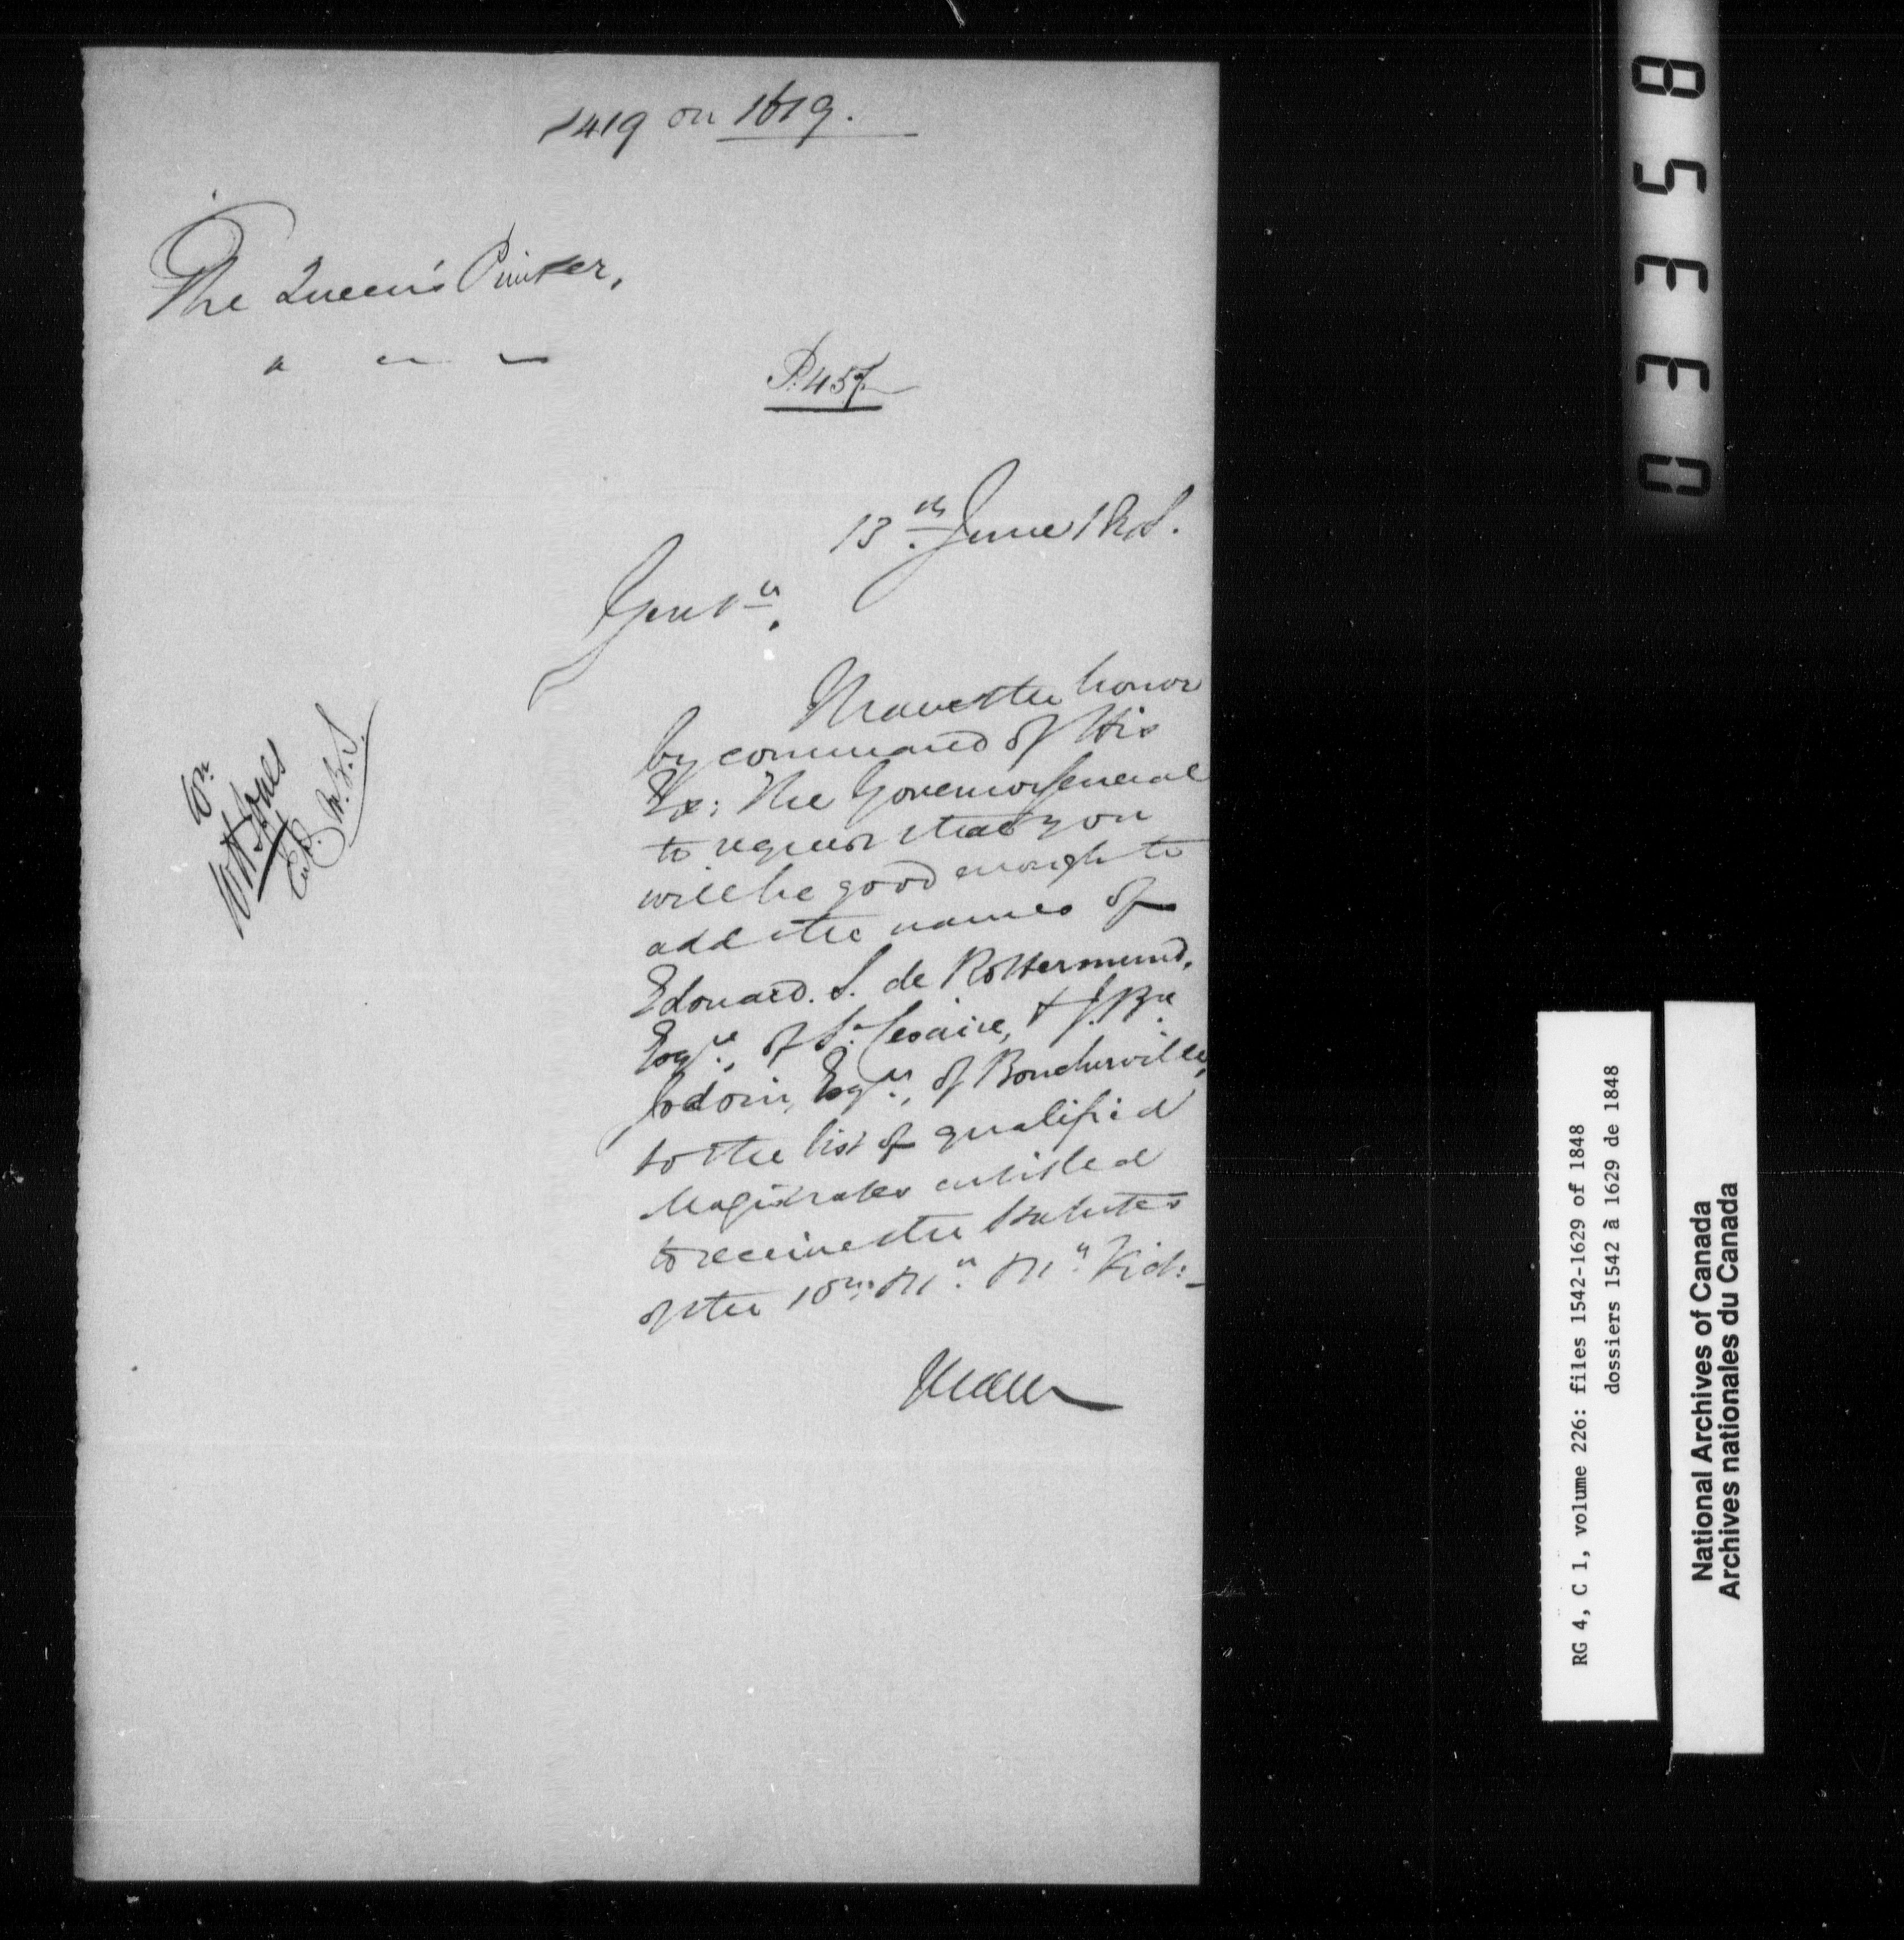 1419 on 1619.
The Queen's Printer,
P. 457.
13th June 1848.
Gentn.
I have the honor
by command of His
Ex: The Governor General
to request that you
will be good enough to
add the names of
Edouard. S. de Rottermund,
Esqre., of St. Cesaire, & J. Bte.
Jodoin, Esqre., of Boucherville,
to the list of qualified
Magistrates entitled
to receive the Statutes
of the
Vict:
En.
W H Jones
RG 4, C 1, volume 226: files 1542-1629 of 1848
dossiers 1542 à 1629 de 1848
National Archives of Canada
Archives nationales du Canada
03358